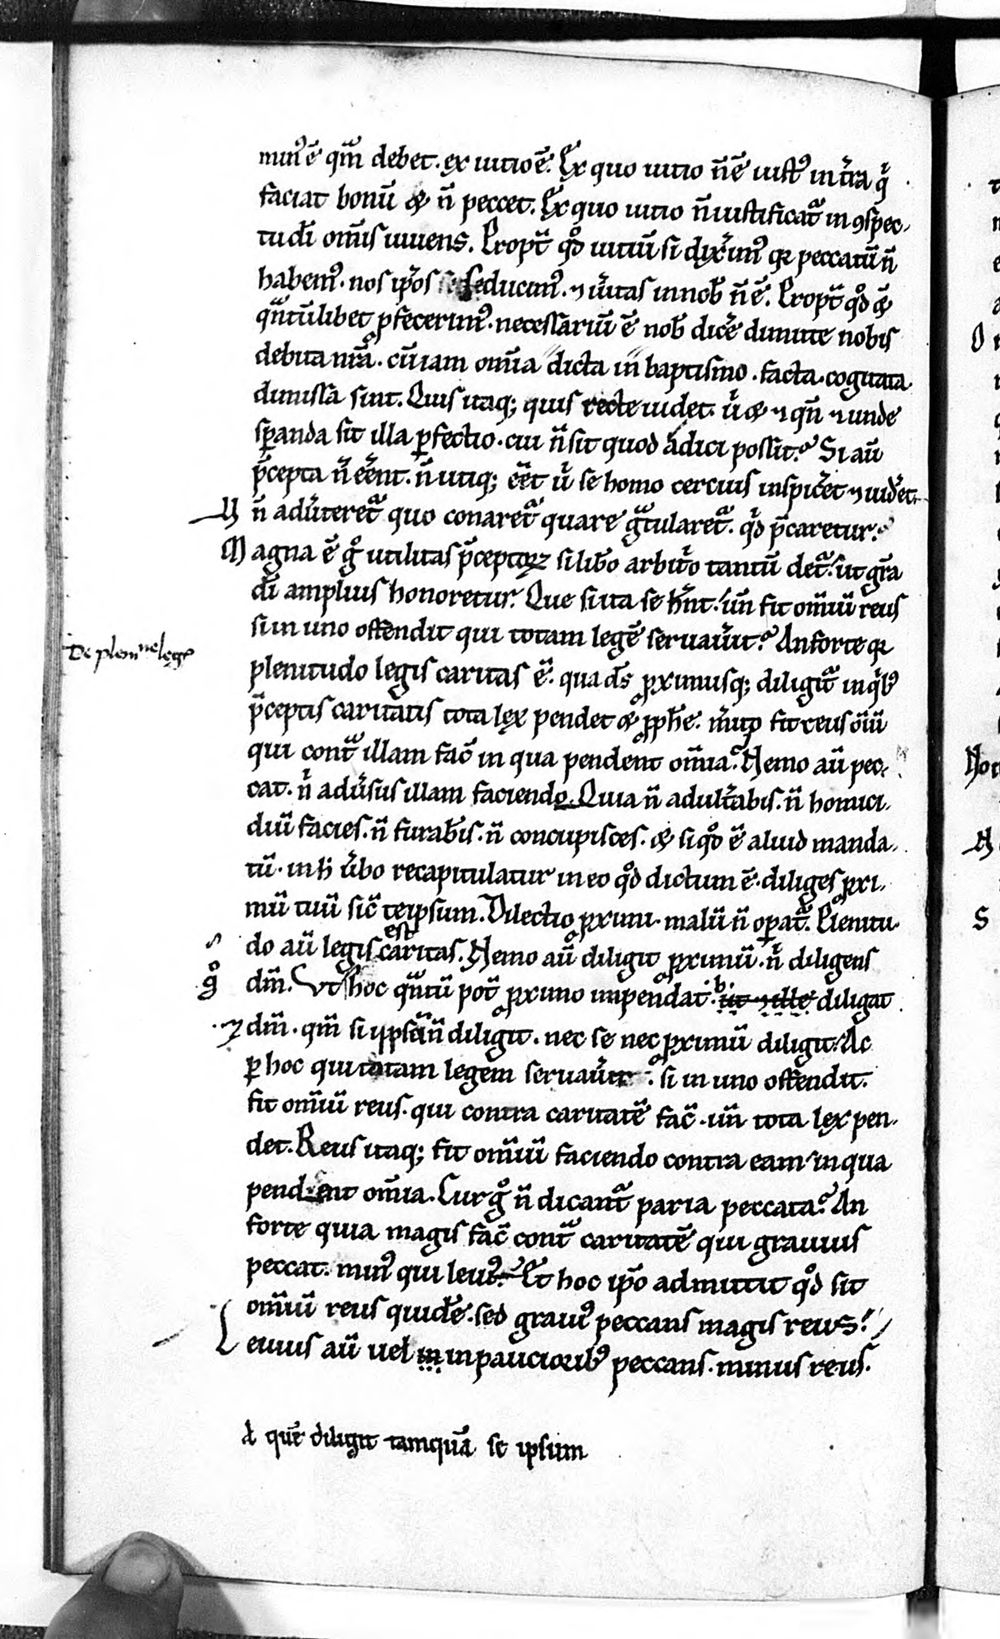 min᷒ ē qm̄ debet. ex uitio ē. Ex quo uitio n̄ ē iust᷒ in t̄ra q̇
faciat bonū & n̄ peccet. Ex quo uitio n̄ iustificat᷑ in ꝯspec-
tu dī om̄is uiuens. Propt̄ qd̄ uitiū si dixerim᷒ qꝛ peccatū n̄
habem᷒. nos ip̄os seducim᷒. ⁊ ūitas in nob̄ n̄ ē. Propt̄ qd̄ &
qn̄tūlibet ꝓfecerim᷒. necessariū ē nob̄ dic̄e dimitte nobis
debita nr̄a. cū iam om̄ia dicta in baptismo. facta. cogitata
dimissa sint. Quis itaq; quis recte uidet. ū & ⁊ qn̄ ⁊ unde
sꝑanda sit illa ꝑfectio. cui n̄ sit quod adici possit? Si aū
p̄cepta n̄ eēnt. n̄ utiq; eēt ū se homo cercius inspic̄et ⁊ uid̄et
H n̄ adūteret᷑ quo conaret᷑ quare gͣtularet᷑. qd̄ p̄caretur?
Magna ē gͦ utilitas p̄ceptoꝝ si lib̄o arbit̄o tantū det᷑. ut gr̄a
dī amplius honoretur. Que si ita se hn̄t. un̄ fit om̄iū reus
si in uno offendit qui totam legē seruaūit? An forte qꝛ
De plenitͤ legꝭ
plenitudo legis caritas ē. qua dš ꝓximusq; diligit᷑ in qͥb᷒
p̄ceptis caritatis tota lex pendet & ꝓph̄e. m̄ito fit reus oīu
qui contͣ illam fac̄ in qua pendent om̄ia? Nemo aū pec-
cat. n̄ adūsus illam faciendo. Quia n̄ adult̄abis. n̄ homici-
diū facies. n̄ furab̄is. n̄ concupisces. & si qd̄ ē aliud manda-
tū. in h̄ ūbo recapitulatur in eo qd̄ dictum ē. diliges ꝓxi-
mū tuū sic̄ teipsum. Dilectio ꝓximi. malū n̄ oꝑat᷑. Plenitu-
do aū legis est caritas. Nemo aū diligit ꝓximū. n̄ diligens
dm̄. Vt hoc qn̄tū pot̄ ꝓximo impendat. ut ⁊ ille diligat
dm̄. qm̄ si ipsū n̄ diligit. nec se nec ꝓximū diligit. Ac
ꝑ hoc qui totam legem seruaūit. si in uno offendit.
fit om̄iū reus. qui contra caritatē fac̄. un̄ tota lex pen-
det. Reus itaq; fit om̄iū faciendo contra eam. in qua
pendent om̄ia. Cur gͦ n̄ dicant᷑ paria peccata? An
forte quia magis fac̄ contͣ caritatē qui grauius
peccat. min᷒ qui leui᷒? Et hoc ip̄o admittit qd̄ sit
om̄iū reus quidē. sed graui᷒ peccans magis reus.
Leuius aū uel in in pauciorib᷒ peccans. minus reus.
A quē diligit tamquā se ipsum